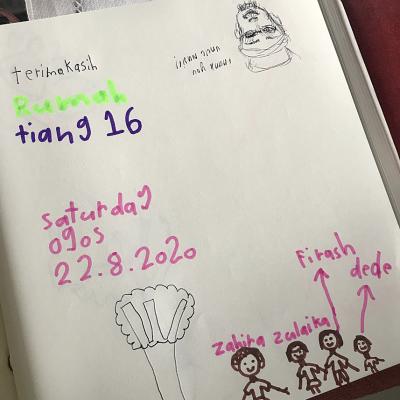 terimakasih
Rumah
tiang 16
saturday
ogos
22.8.2020
Firash
dede
zahira zulaika